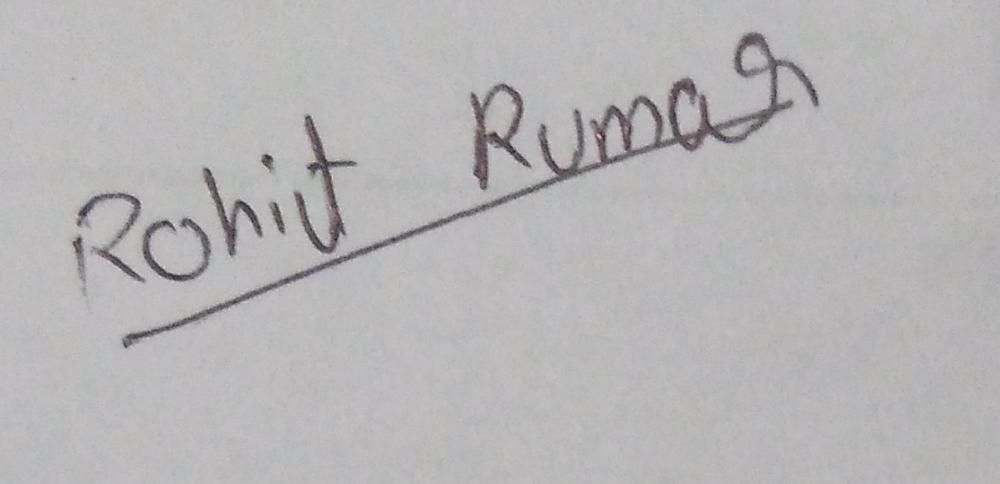 Rohit Rumar